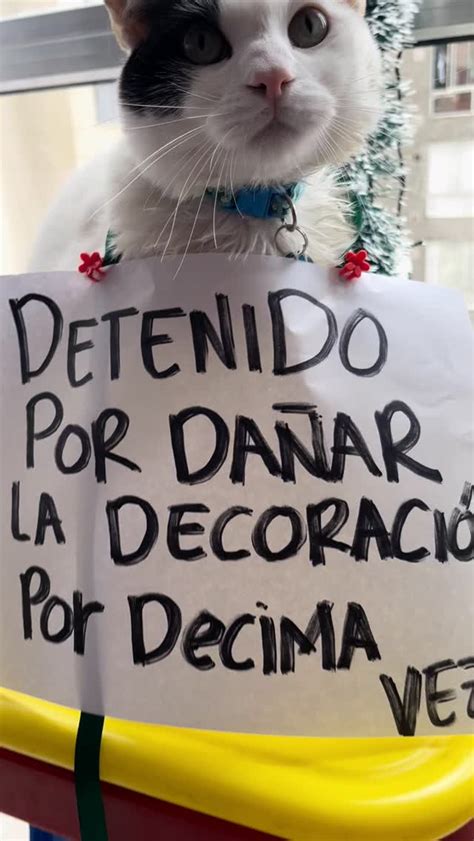 DETENIDO
POR DAÑAR
LA DECORACIÓ
Por DeciMA
VEZ